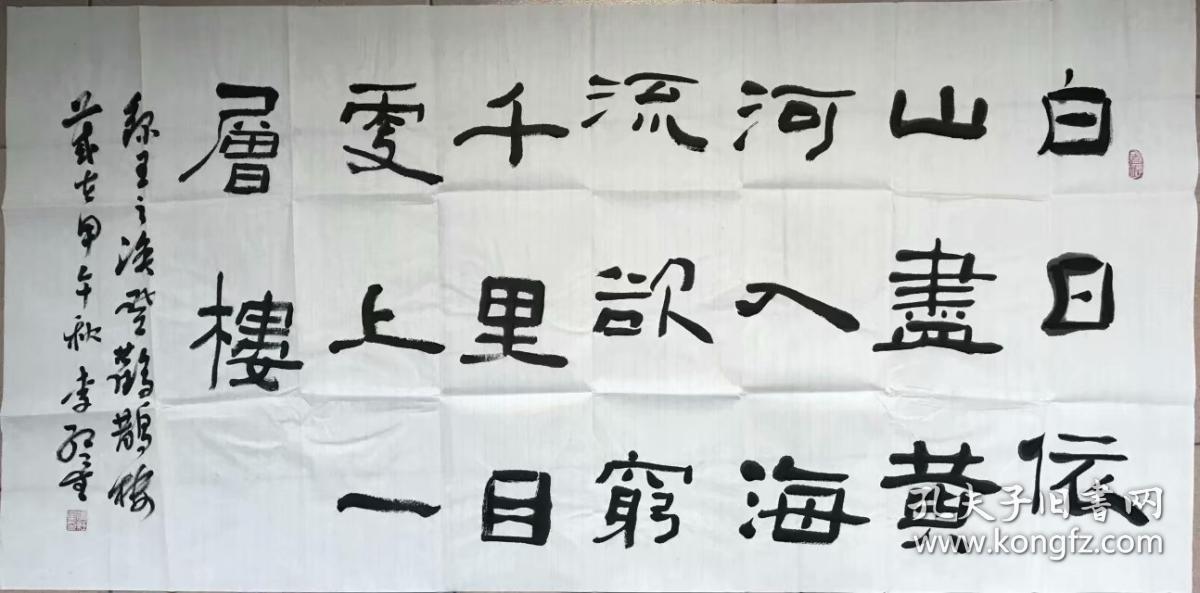 白日依
山盡黃
河入海
流欲窮
千里目
更上一
層樓
錄王之渙登鸛鵲樓
歲在甲午秋 李
孔夫子旧书网
www.kongfz.com